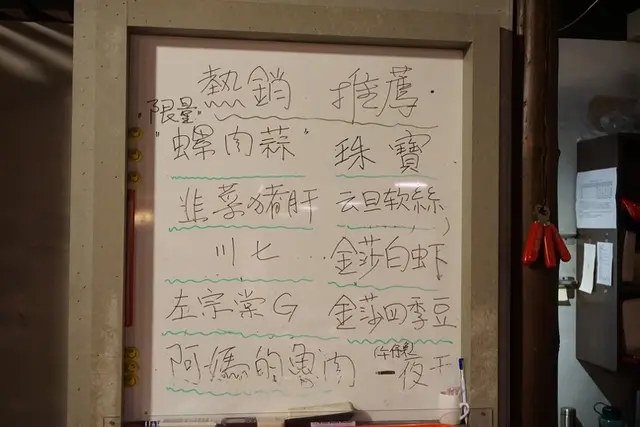 熱銷 推薦
限量
"螺肉蒜" 珠寶
韭菜猪肝 云旦软絲
川七 金莎白虾
左宗棠G 金莎四季豆
阿媽的魯肉 一夜干